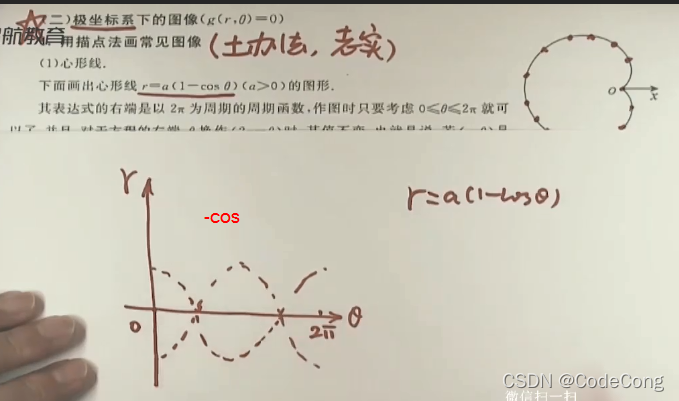 二)极坐标系下的图像(g(r,θ)=0)
航教育
用描点法画常见图像 (土办法, 老实)
(1)心形线.
下面画出心形线 r=a(1-cos θ)(a>0)的图形.
其表达式的右端是以 2π 为周期的周期函数,作图时只要考虑 0≤θ≤2π 就可
O x
r
-cos
r=a(1-cosθ)
0
2π
θ
CSDN @CodeCong
微信扫一扫